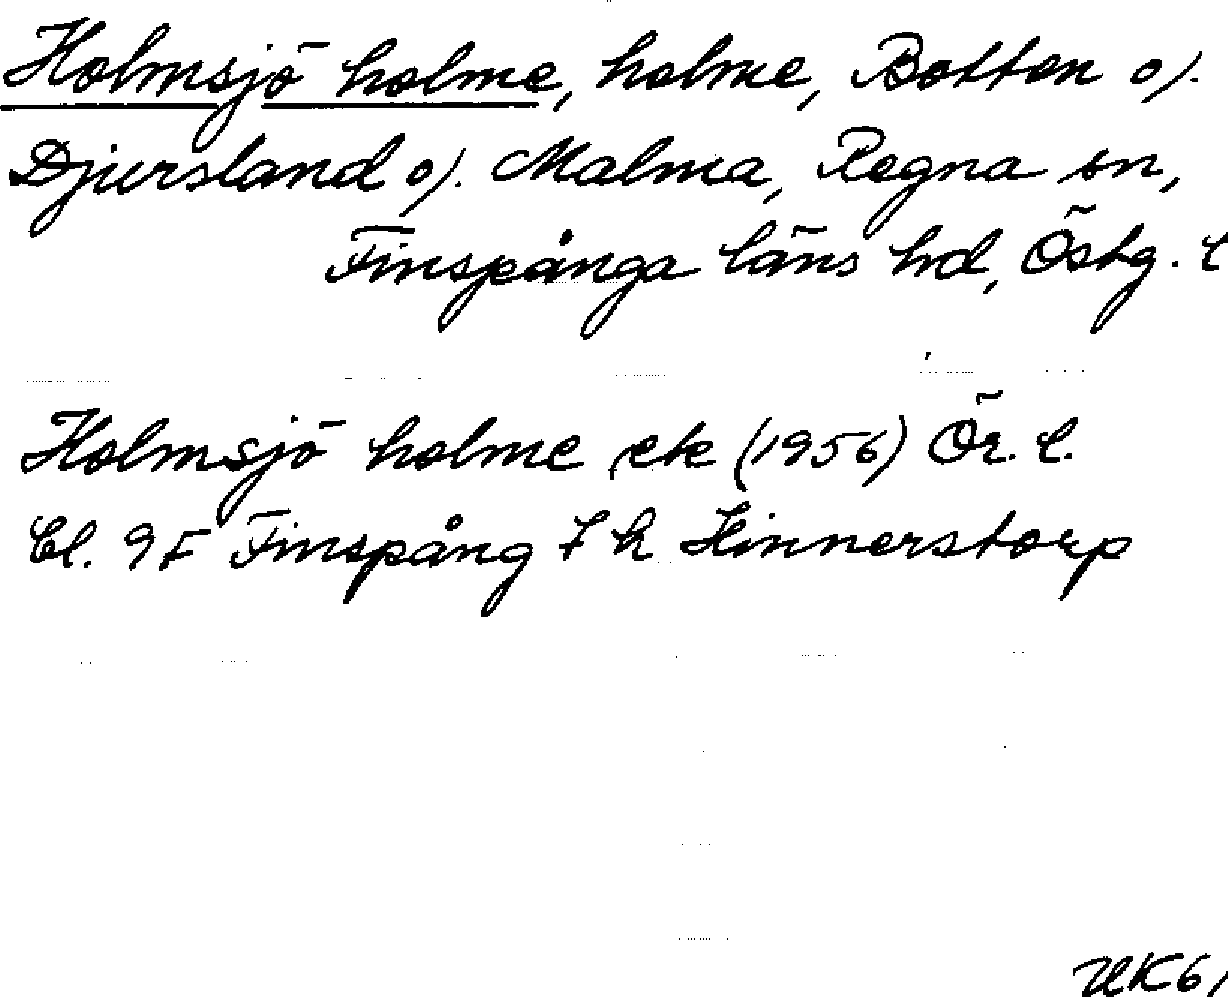 Holmsjö holme, holme, Botten o/.
Djursland o/. Malma, Regna sn,
Finspånga läns hd, Östg. l
Holmsjö holme ek (1956) Ör. l.
Bl. 9F Finspång 7 h Hinnerstorp
UK61